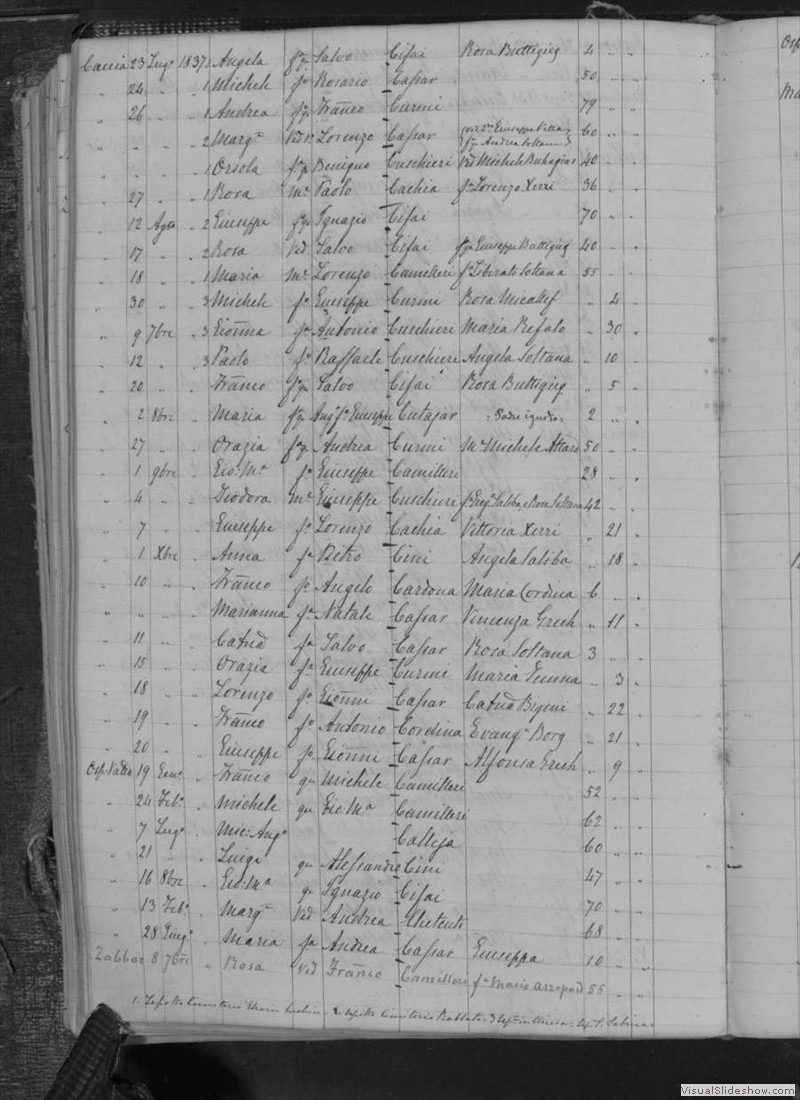 Caccia 23 Lugo 1837 3 Angela fa qm Salvo Cifai Rosa Buttigieg 4 " "
" 24 " " 1 Michele fo Rosario Cassar 50 " "
" 26 " " 1 Andrea fo qm Franco Curmi 79 " "
" " " " 2 Marga Vedva Lorenzo Cassar Giuseppe Vella fa Andrea Soltana 60 " "
" " " " 1 Orsola fa qm Benigno Cuschieri Ved Michele Buhagiar 40 " "
" 27 " " 1 Rosa me Paolo Cachia fa Lorenzo Xerri 36 " "
" 12 Agto " 2 Giuseppe fo qm Ignazio Cifai 70 " "
" 17 " " 2 Rosa Ved Salvo Cifai fa qm Giuseppe Buttigieg 40 " "
" 18 " " 1 Maria me Lorenzo Camilleri fa Liberato Soltana 55 " "
" 30 " " 3 Michele fo Giuseppe Curmi Rosa Micallef " 4 "
" 9 7bre " 3 Gionna fa Antonio Cuschieri Maria Refalo " 30 "
" 12 " " 3 Paolo fo Raffaele Cuschieri Angela Soltana " 10 "
" 20 " " Franco fo qm Salvo Cifai Rosa Buttigieg " 5 "
" 2 8bre " Maria fa qm Giuseppe Cutajar Padre ignoto 2 " "
" 27 " " Orazia fa qm Andrea Curmi Me Michele Attard 50 " "
" 1 9bre " Gio: Ma fo Giuseppe Camilleri 28 " "
" 4 " " Teodora me Giuseppe Cuschieri fa Greg. Saliba, e Rosa Soltana 42 " "
" 7 " " Giuseppe fo Lorenzo Cachia Vittoria Xerri " 21 "
" 1 Xbre " Anna fa Pietro Cini Angela Saliba " 18 "
" 10 " " Franco fo Angelo Cardona Maria Cordina 6 " "
" " " " Marianna fa Natale Cassar Vincenza Grech " 11 "
" 11 " " Catna fa Salvo Cassar Rosa Soltana 3 " "
" 15 " " Orazia fa Giuseppe Curmi Maria " 3 "
" 18 " " Lorenzo fo Gionni Cassar Catna Bigeni " 22 "
" 19 " " Franco fo Antonio Cordina Evanga Borg " 21 "
" 20 " " Giuseppe fo Gionni Cassar Alfonsa Grech " 9 "
Osp. Valta 19 Geno " Franco qm Michele Camilleri 52 " "
" 24 Febo " Michele qm Gio: Ma Camilleri 62 " "
" 7 Lugo " Mic: Ango Calleja 60 " "
" 21 " " Luigi qm Alessandro Cini 47 " "
" 16 8bre " Gio: Ma qm Ignazio Cifai 70 " "
" 13 Febo " Marga Ved Andrea Chetcuti 68 " "
" 28 Giugo " Maria fa Andrea Cassar Giuseppa 10 " "
Zabbar 8 7bre " Rosa ved Franco Camilleri fa Mario 55 " "
VisualSlideshow.com